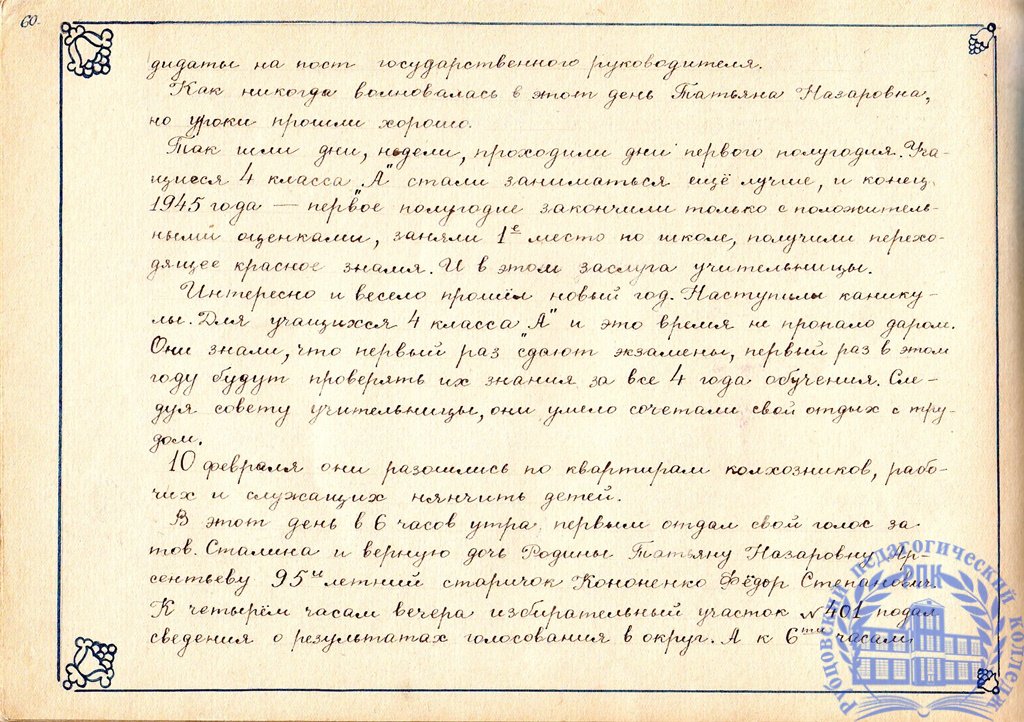 60.
дидаты на пост государственного руководителя.
Как никогда волновалась в этот день Татьяна Назаровна,
но уроки прошли хорошо.
Так шли дни, недели, проходили дни первого полугодия. Уча-
щиеся 4 класса "А" стали заниматься ещё лучше, и конец
1945 года — первое полугодие закончили только с положитель-
ными оценками, заняли 1е место по школе, получили перехо-
дящее красное знамя. И в этом заслуга учительницы.
Интересно и весело прошёл новый год. Наступили канику-
лы. Для учащихся 4 класса "А" и это время не пропало даром.
Они знали, что первый раз сдают экзамены, первый раз в этом
году будут проверять их знания за все 4 года обучения. Сле-
дуя совету учительницы, они умело сочетали свой отдых с тру-
дом.
10 февраля они разошлись по квартирам колхозников, рабо-
чих и служащих нянчить детей.
В этот день в 6 часов утра первым отдал свой голос за
тов. Сталина и верную дочь Родины Татьяну Назаровну Ар-
сентьеву 95и летний старичок Кононенко Фёдор Степанович.
К четырём часам вечера избирательный участок №401 подал
сведения о результатах голосования в округ. А к 6ти часам
Рубцовский педагогический колледж
РПК